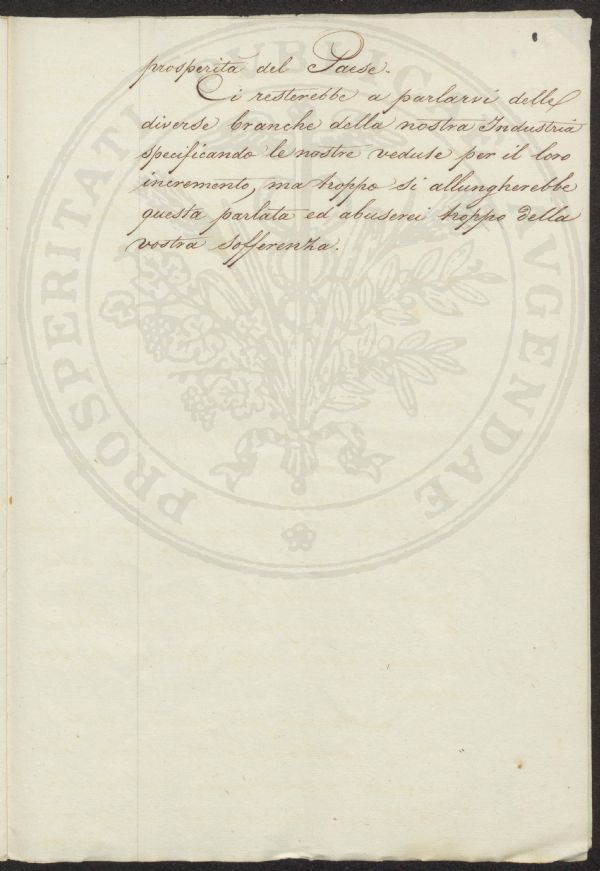 prosperità del Paese.
Ci resterebbe a parlarvi delle
diverse branche della nostra Industria
specificando le nostre vedute per il loro
incremento, ma troppo si allungherebbe
questa parlata ed abuserei troppo della
vostra sofferenza.
PROSPERITATI PUBLICAE AVGENDAE